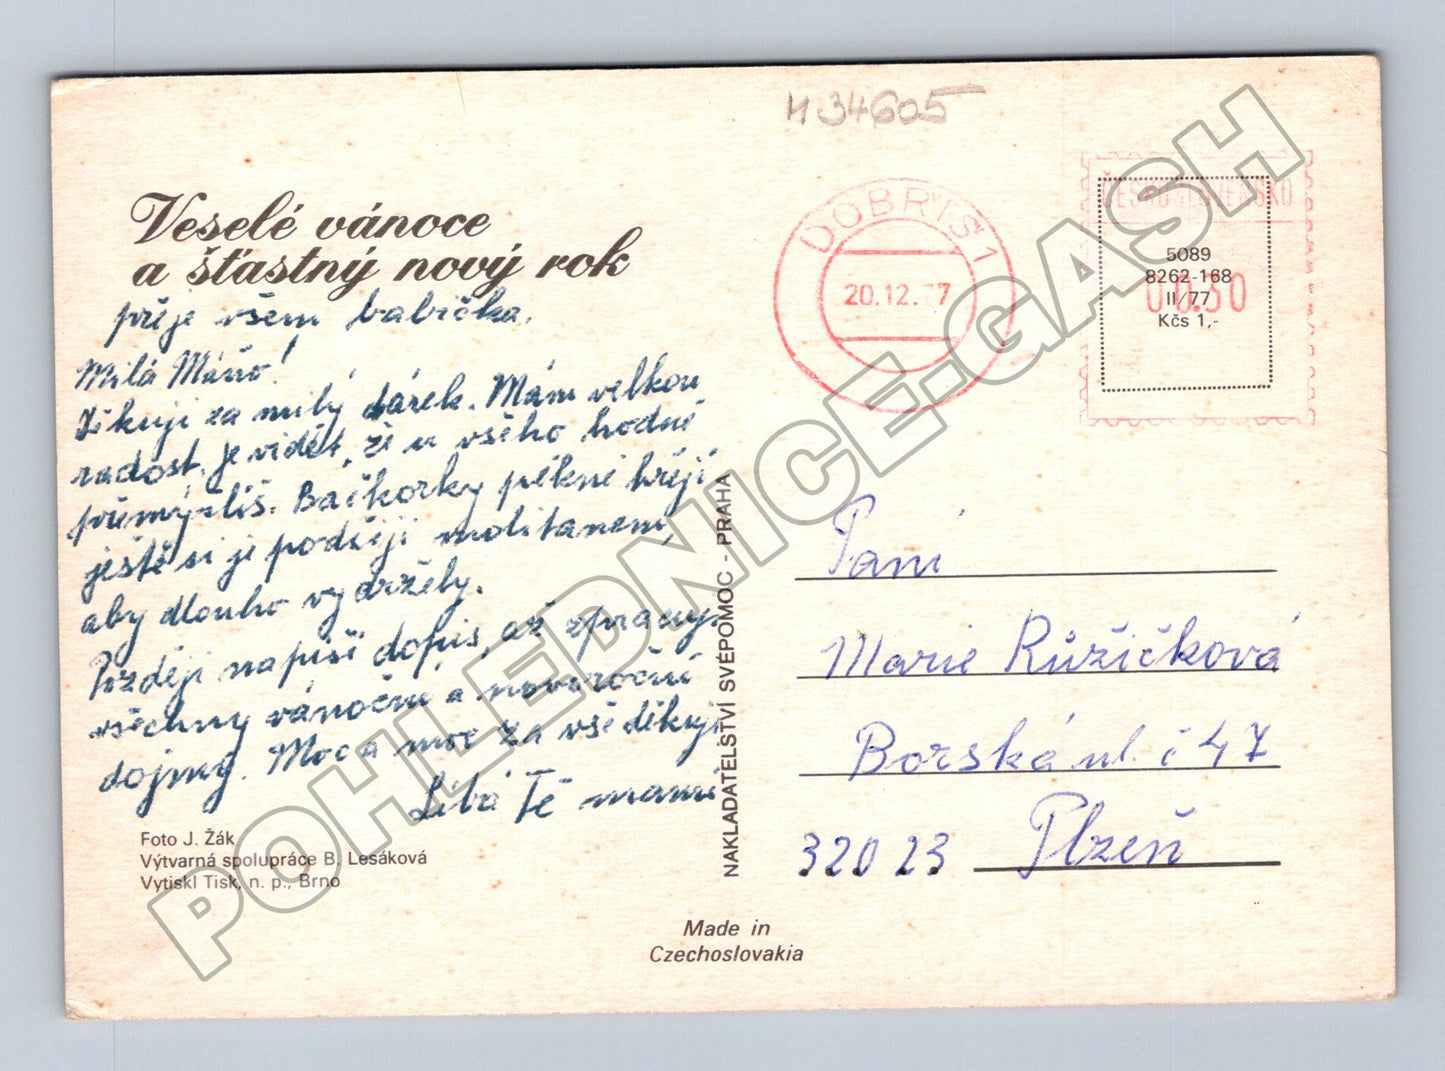 И 34605
Veselé vánoce
a šťastný nový rok
přeje všem babička.
Milá Mářo!
Děkuji za milý dárek. Mám velkou
radost, je vidět, že u všeho hodně
přemýšlíš. Bačkorky pěkně hřejí
ještě si je podšiji molitanem,
aby dlouho vydržely.
Později napíši dopis, až zpracuji
všechny vánoční a novoroční
dojmy. Moc a moc za vše děkuji
Líbá Tě mami
Foto J. Žák
Výtvarná spolupráce B. Lesáková
Vytiskl Tisk, n. p., Brno
NAKLADATELSTVÍ SVÉPOMOC - PRAHA
Made in
Czechoslovakia
DOBŘÍŠ 1
20.12.77
ČESKOSLOVENSKO
00.30
5089
8262-168
II/77
Kčs 1,-
Paní
Marie Růžičková
Borská ul. č 47
32023 Plzeň
POHLEDNICE-GASH